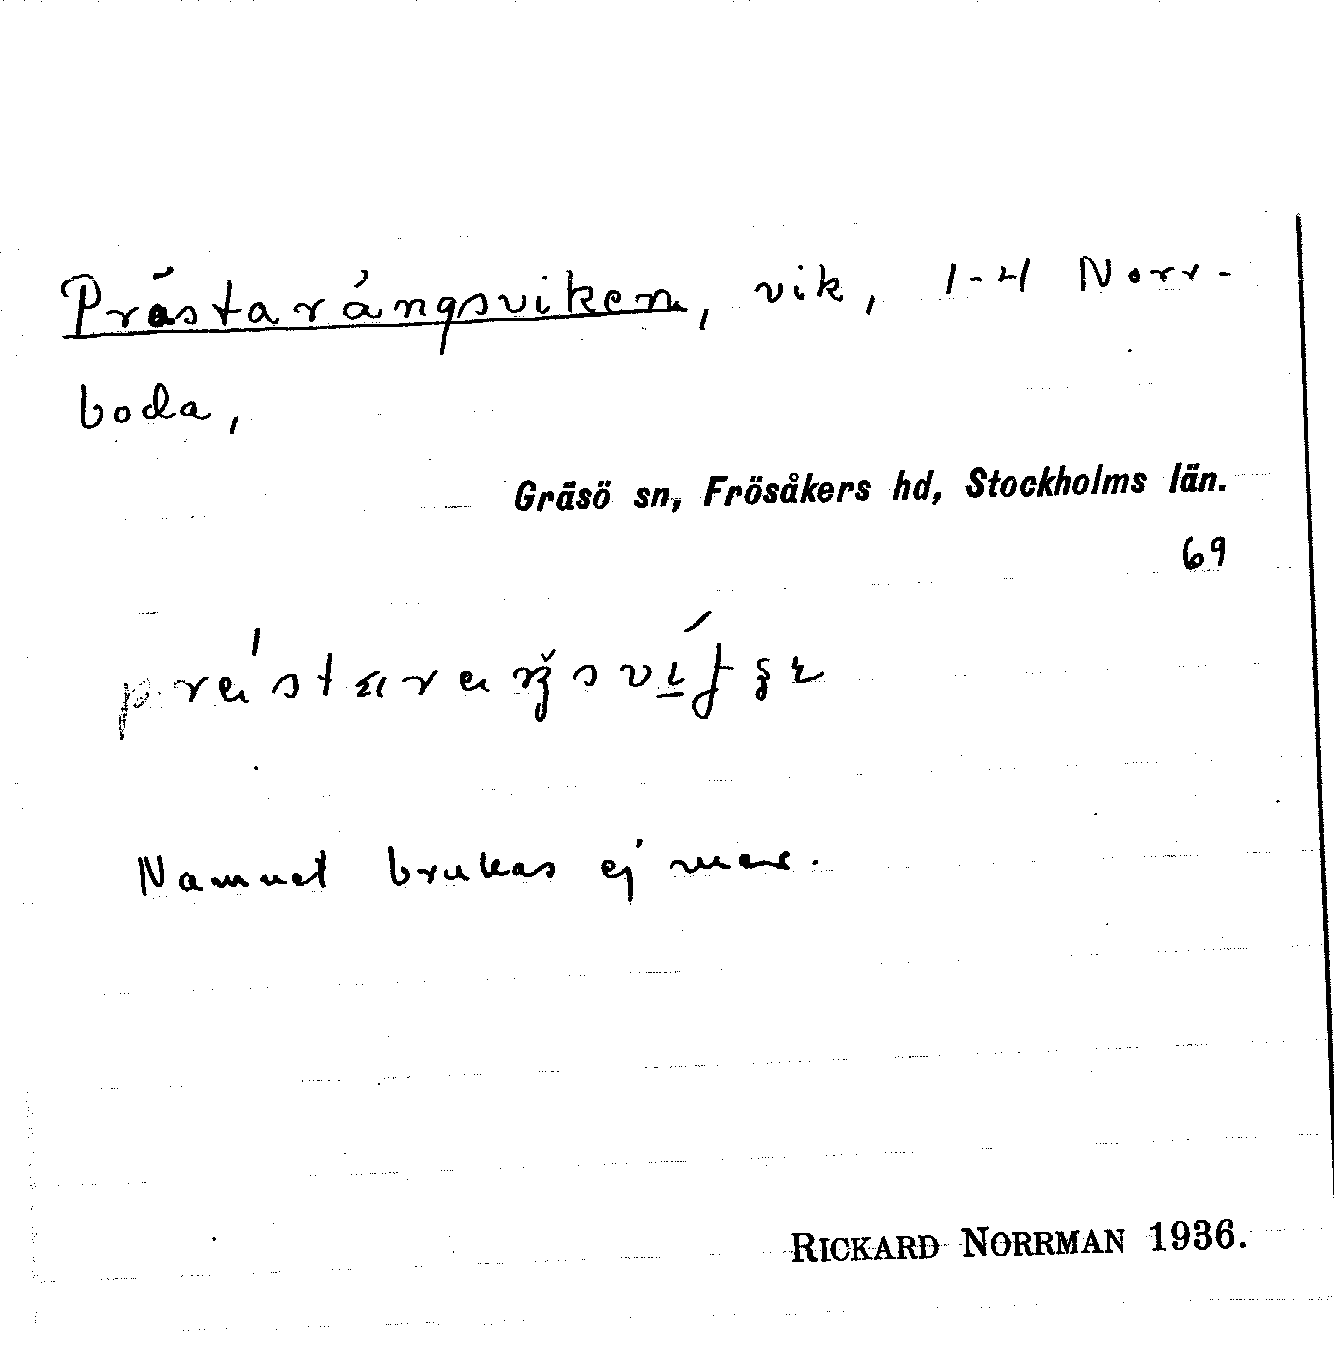 Prästarängsviken, vik, 1-4 Norr-
boda,
Gräsö sn, Frösåkers hd, Stockholms län.
69
Namnet brukas ej mer.
RICKARD NORRMAN 1936.